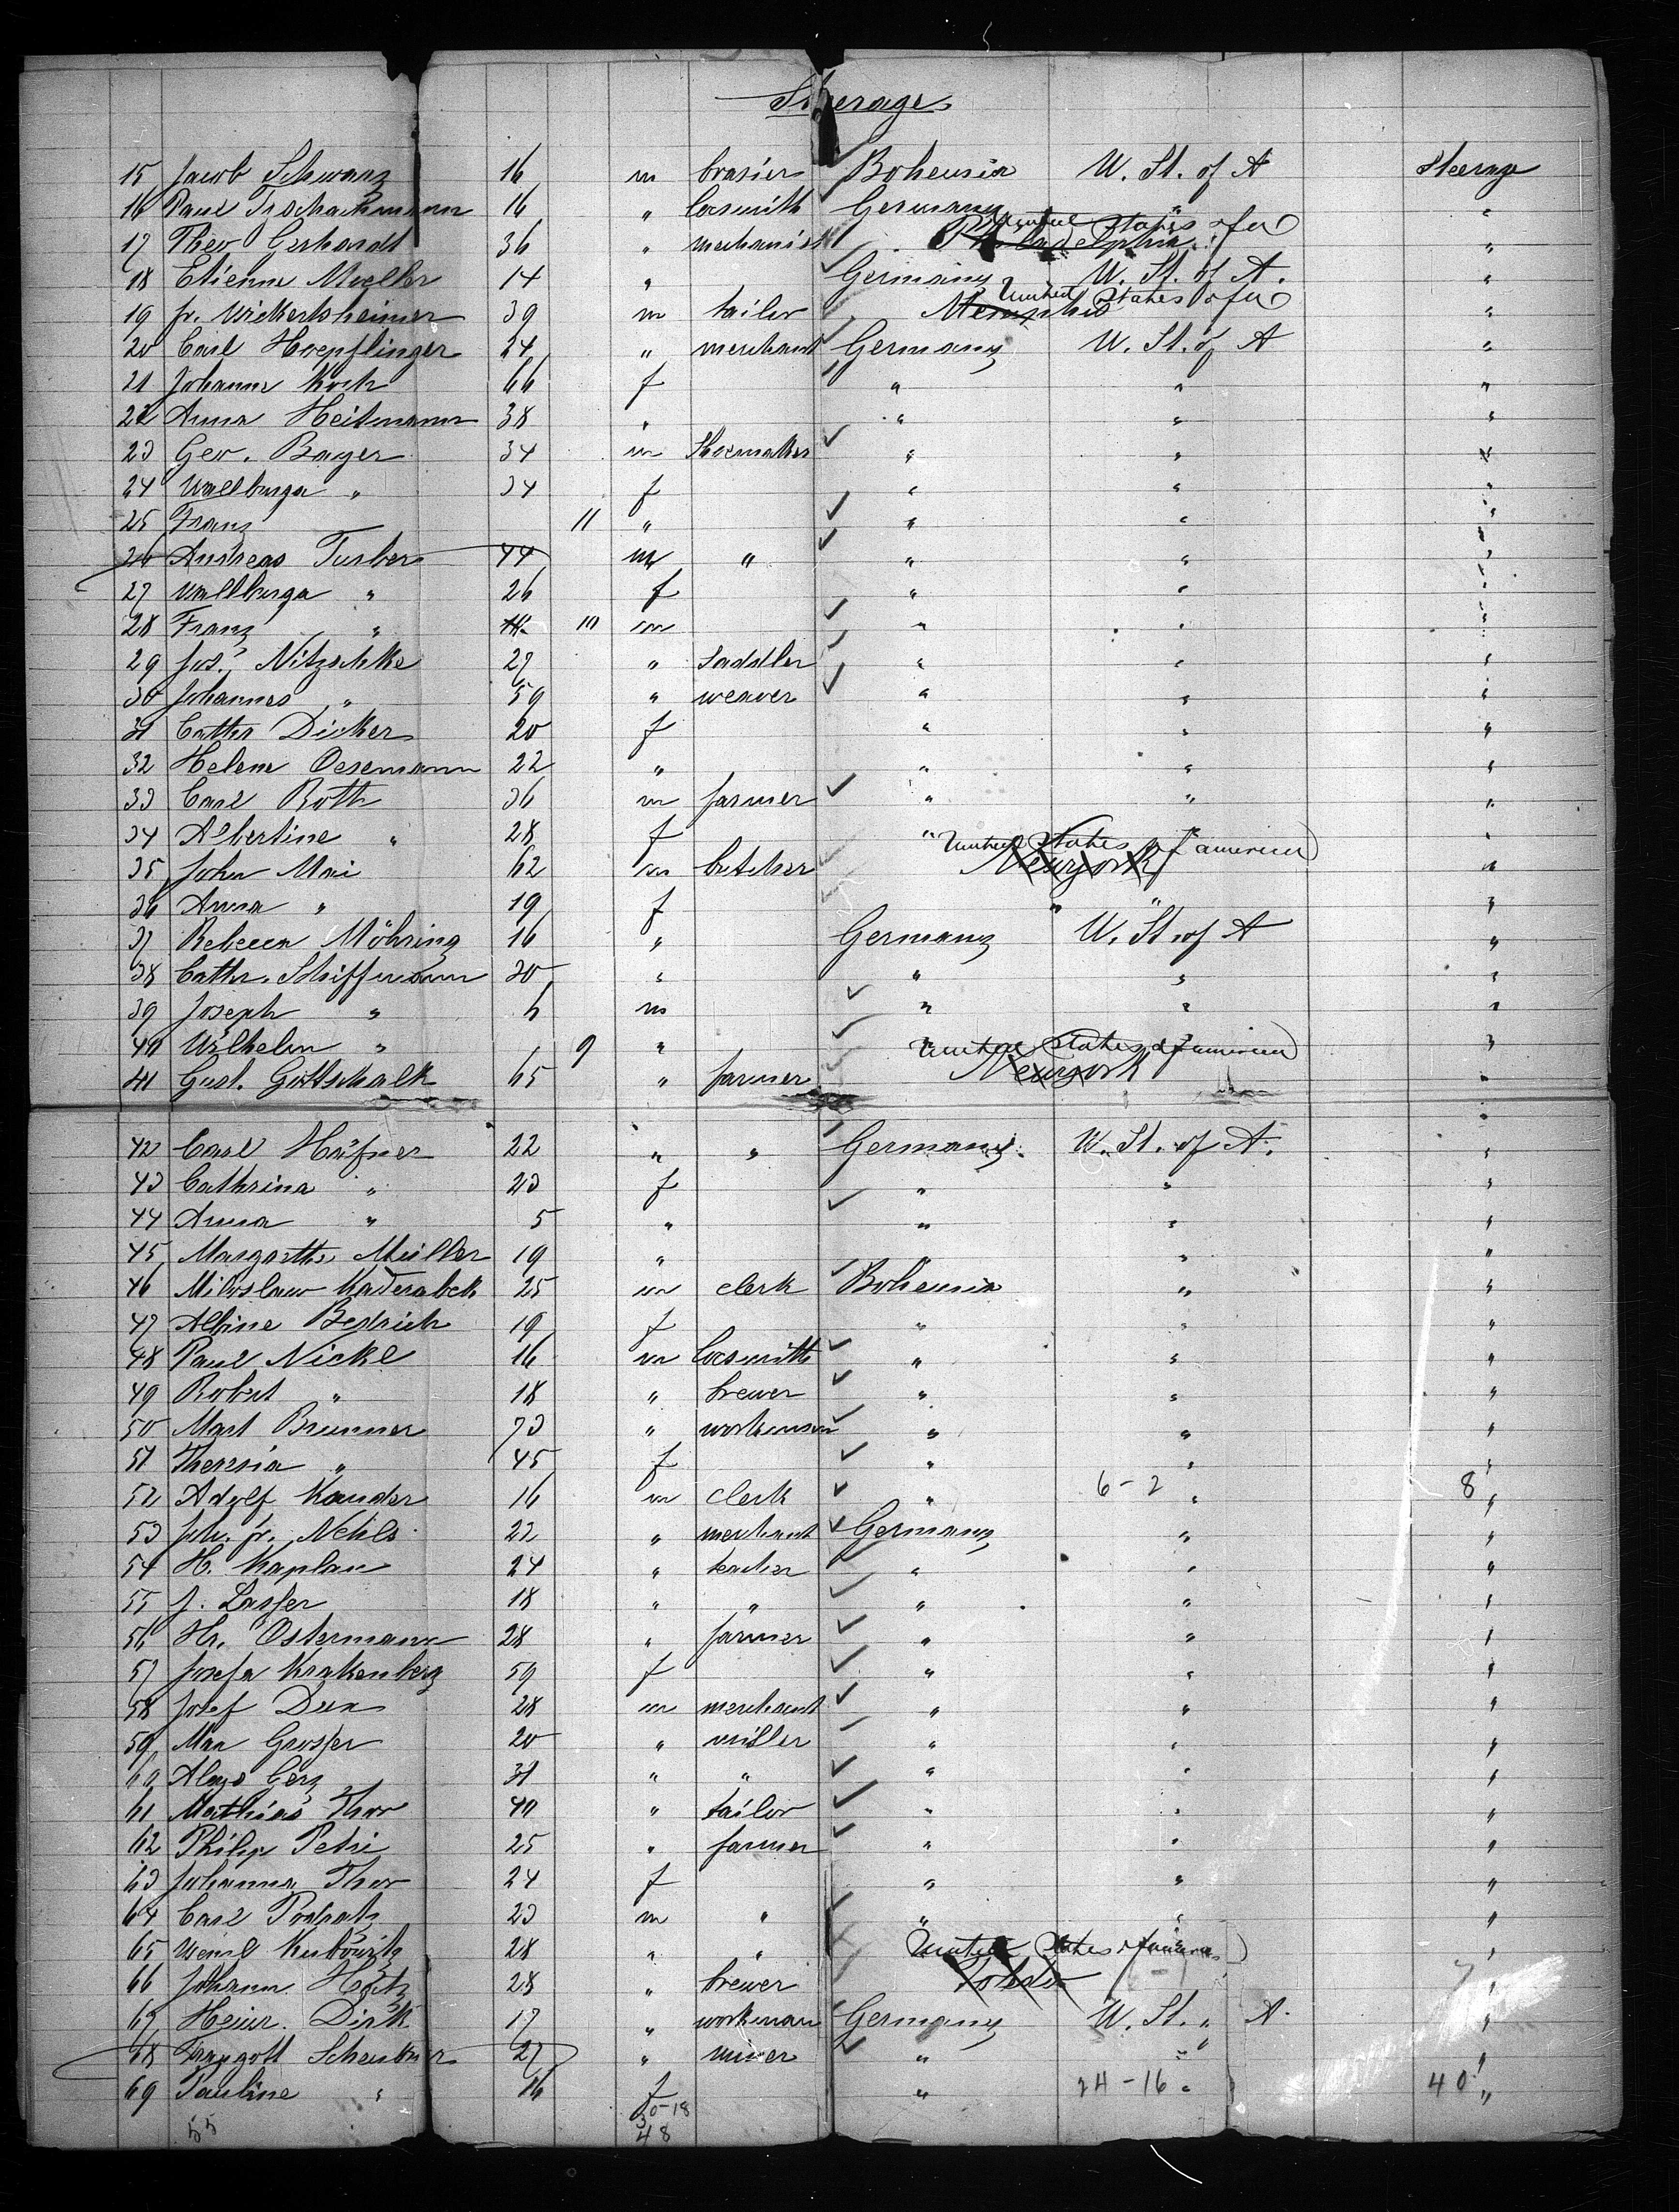 Steerage
15 Jacob Schwarz 16 m brasier Bohemia U. St. of A Steerage
16 Paul Tzschachmann 16 " locsmith Germany "
United States of a
17 Theo Gerhardt 36 " mechanist Philadelphia "
18 Etienne Moeller 14 " Germany U. St. of A. "
United States of a
19 fr. Wickertsheimer 39 m tailor Memphis "
20 Carl Hoepflinger 24 " merchant Germany U. St. of A "
21 Johanne Koch 66 f " " "
22 Anna Heitmann 38 " " " "
23 Geo. Bayer 34 m Shoemaker " " "
24 Wallburga " 34 f " " "
25 Franz 11 " " " "
26 Andreas Turber 44 m " " " "
27 Wallburga " 26 f " " "
28 Franz " 10 m " " "
29 Jos. Nitzschke 27 " Saddler " " "
30 Johannes " 59 " weaver " " "
31 Cathr Dicker 20 f " " "
32 Helene Oesemann 22 " " " "
33 Carl Roth 36 m farmer " " "
34 Albertine " 28 f " " "
United States of america
35 John Mai 62 m butcher Newyork "
36 Anna " 19 f " " "
37 Rebecca Möhring 16 " Germany U. St. of A "
38 Cathr. Schiffmann 30 " " " "
39 Joseph " 6 m " " "
40 Wilhelm " 9 " " " "
United States of america
41 Gust. Gottschalk 65 " farmer Newyork "
42 Carl Häfner 22 " " Germany U. St. of A. "
43 Cathrina " 23 f " " "
44 Anna " 5 " " " "
45 Margarethe Müller 19 " " "
46 Miloslaw Kaderabek 25 m clerk Bohemia " "
47 Albine Bedrich 19 f " " "
48 Paul Nickl 16 m locsmith " " "
49 Robert " 18 " brewer " " "
50 Mart Brunner 73 " workman " " "
51 Theresia " 45 f " " "
52 Adolf Kauder 16 m clerk " 6-2 " 8 "
53 Joh. fr. Nehls 22 " merchant Germany " "
54 H. Kaplan 24 " teacher " " "
55 J. Lasser 18 " " " " "
56 Hr. Ostermann 28 " farmer " " "
57 Josefa Krakenberg 59 f " " "
58 Josef Dux 28 m merchant " " "
59 Max Grosser 20 " miller " " "
60 Aloys Gerz 31 " " " " "
61 Mathias Thor 40 " tailor " " "
62 Philip Petri 25 " farmer " " "
63 Johanna Thor 24 f " " "
64 Carl 23 m " " " "
United States of america
65 28 " " "
66 Johann 28 " brewer Toledo "
67 Heinr. Dirk 17 " workman Germany U. St. " A. "
68 Traugott 27 " miner " " "
69 Pauline " 16 f " 24-16 " 40 "
30-18
55 48